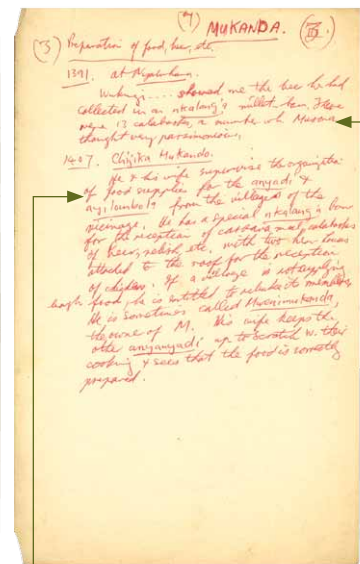 (7) MUKANDA. (III.)
(3) Preparation of food, beer, etc.
1391. at Nyaluhana.
Wukengi .... showed me the beer he had
collected in an nkalang'a millet beer. There
were 13 calabashes, a number wh. Musona
thought very parsimonious.
1407. Chijika Mukanda.
He & his wife supervise the organization
of food supplies for the anyadi &
ayilombola from the villages of the
vicinage. He has a special nkalang'a
for the reception of cassava meal, calabashes
of beer, relish, etc. with two hen-houses
attached to the roof for the reception
of chickens. If a village is not supplying
enough food, he is entitled to rebuke its members.
He is sometimes called Mwenimukanda,
the owner of M. His wife keeps the
other anyanyadi up to scratch w. their
cooking & sees that the food is correctly
prepared.